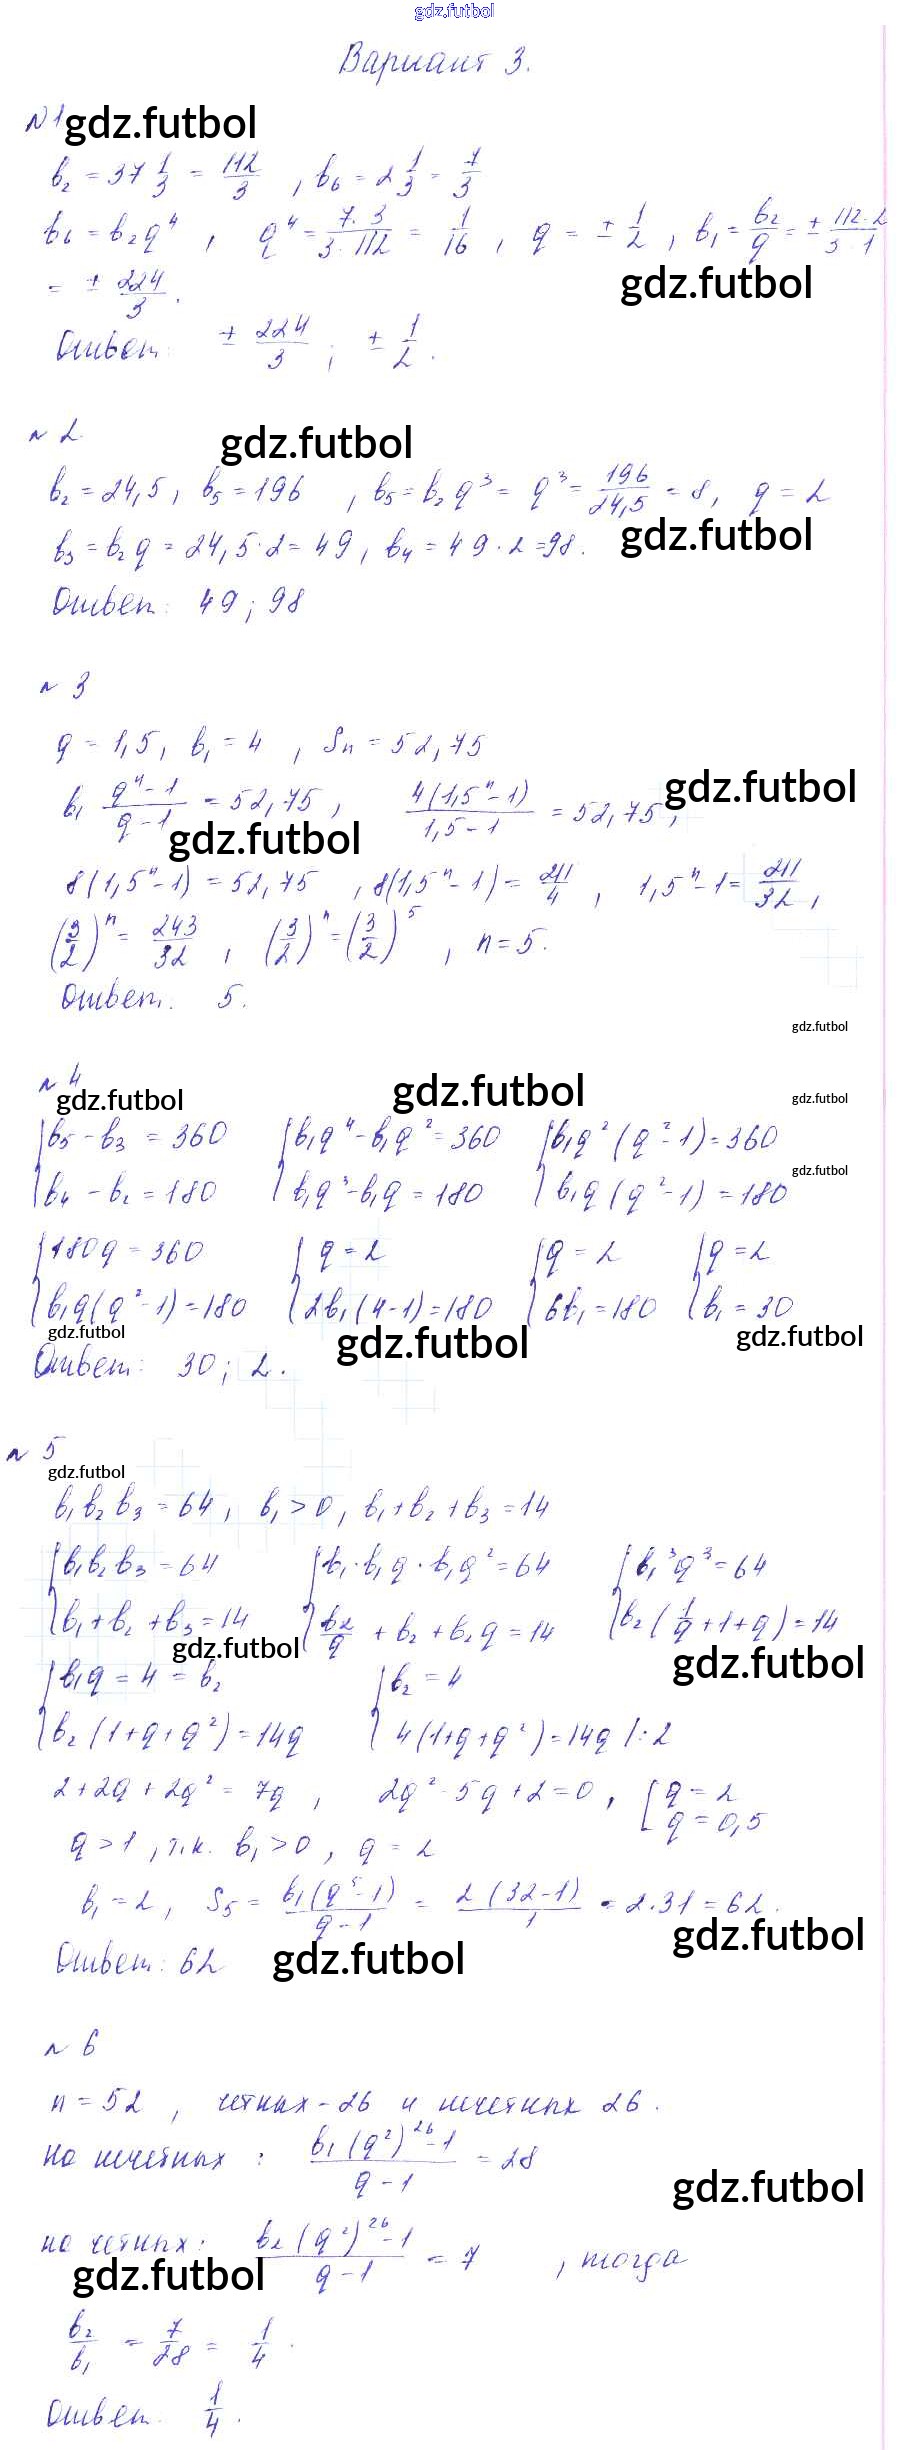 gdz.futbol
Вариант 3.
№1 gdz.futbol
b₂ = 37 1/3 = 112/3 , b₆ = 2 1/3 = 7/3
b₆ = b₂q⁴ , q⁴ = 7·3/3·112 = 1/16 , q = ± 1/2 , b₁ = b₂/q = ± 112·2/3·1
= ± 224/3 . gdz.futbol
Ответ: ± 224/3 ; ± 1/2 .
№ 2 gdz.futbol
b₂ = 24,5 , b₅ = 196 , b₅ = b₂q³ = q³ = 196/24,5 = 8, q = 2
gdz.futbol
b₃ = b₂q = 24,5·2 = 49, b₄ = 49·2 = 98.
Ответ: 49 ; 98
№ 3
q = 1,5, b₁ = 4 , Sₙ = 52,75
b₁ qⁿ-1/q-1 = 52,75 , 4(1,5ⁿ-1)/1,5-1 = 52,75 , gdz.futbol
gdz.futbol
8(1,5ⁿ-1) = 52,75 , 8(1,5ⁿ-1) = 211/4 , 1,5ⁿ-1 = 211/32 ,
(3/2)ⁿ = 243/32 , (3/2)ⁿ = (3/2)⁵ , n = 5.
Ответ: 5.
gdz.futbol
№ 4
gdz.futbol gdz.futbol gdz.futbol
{b₅ - b₃ = 360 {b₁q⁴ - b₁q² = 360 {b₁q²(q²-1) = 360
gdz.futbol
b₄ - b₂ = 180 b₁q³ - b₁q = 180 b₁q(q²-1) = 180
{180q = 360 {q = 2 {q = 2 {q = 2
b₁q(q²-1) = 180 2b₁(4-1) = 180 6b₁ = 180 b₁ = 30
gdz.futbol gdz.futbol gdz.futbol
Ответ: 30 ; 2 .
№ 5
gdz.futbol
b₁b₂b₃ = 64, b₁ > 0, b₁+b₂+b₃ = 14
{b₁b₂b₃ = 64 {b₁·b₁q·b₁q² = 64 {b₁³q³ = 64
b₁+b₂+b₃ = 14 b₂/q + b₂ + b₂q = 14 b₂(1/q+1+q) = 14
gdz.futbol gdz.futbol
{b₁q = 4 = b₂ {b₂ = 4
b₂(1+q+q²) = 14q 4(1+q+q²) = 14q |:2
2+2q+2q² = 7q , 2q²-5q+2 = 0 , [q = 2
q = 0,5
q > 1 , т.к. b₁ > 0 , q = 2
b₁ = 2 , S₅ = b₁(q⁵-1)/q-1 = 2(32-1)/1 = 2·31 = 62 .
gdz.futbol
Ответ: 62 gdz.futbol
№ 6
n = 52 , четных - 26 и нечетных 26 .
на нечетных : b₁(q²)²⁶-1/q-1 = 28
gdz.futbol
на четных : b₂(q²)²⁶-1/q-1 = 7 , тогда
gdz.futbol
b₂/b₁ = 7/28 = 1/4 .
Ответ. 1/4 .